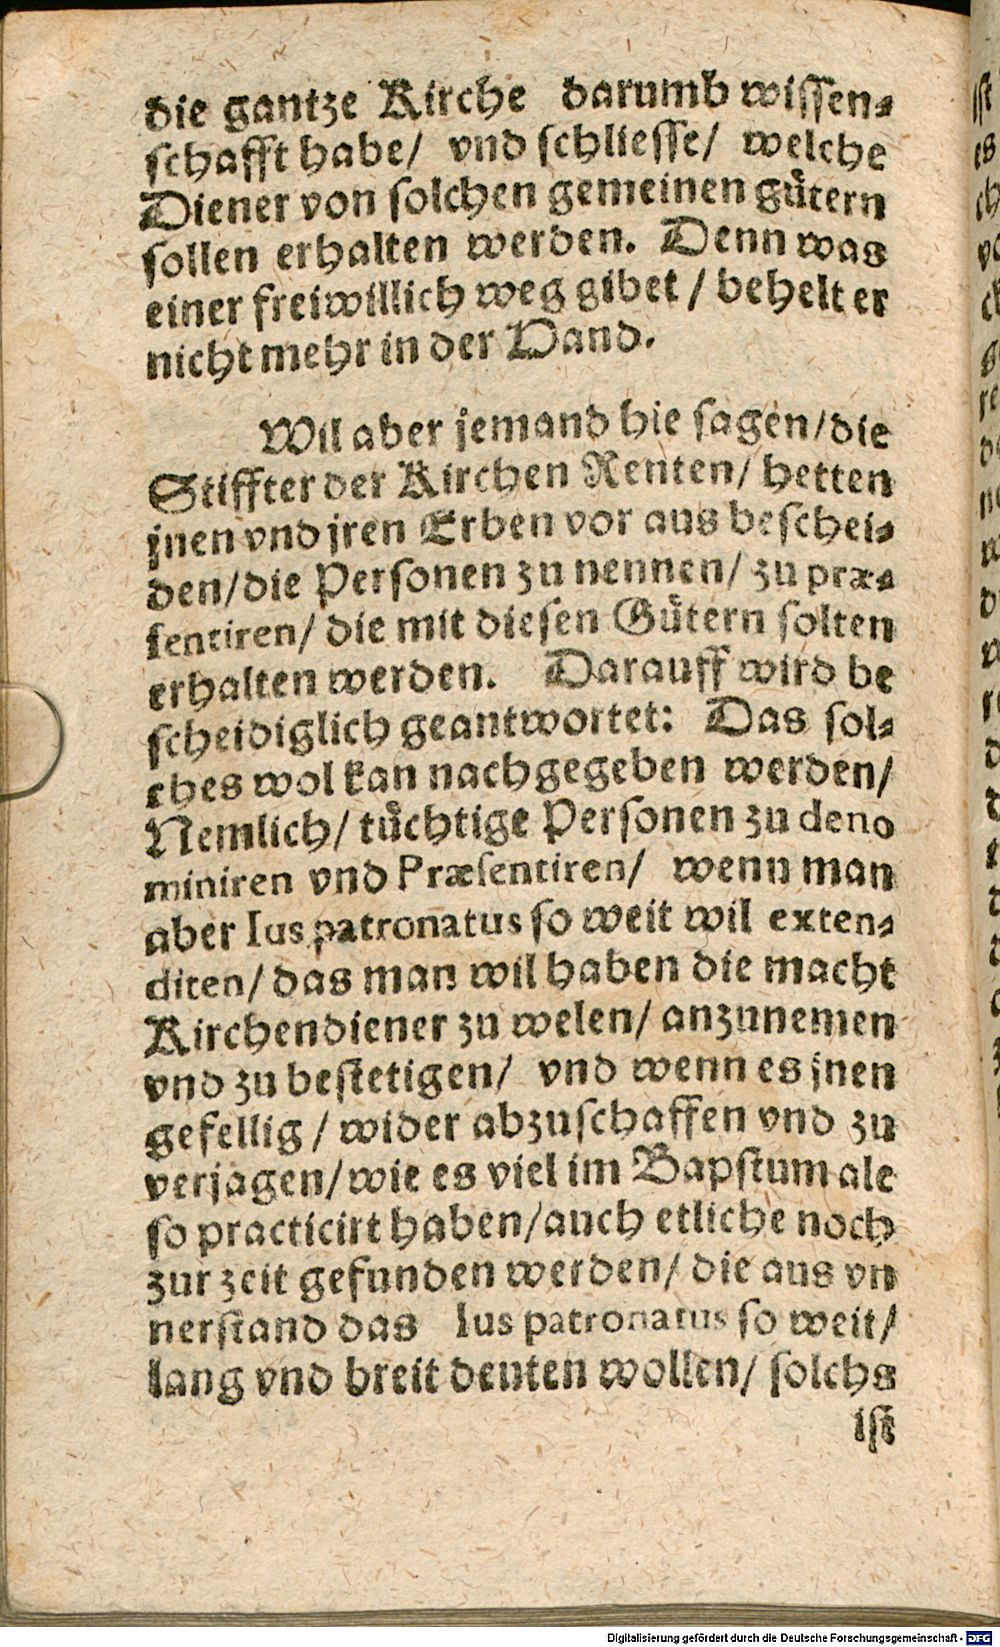 die gantze Kirche darumb wissen⸗
schafft habe/ vnd schliesse/ welche
Diener von solchen gemeinen guͤtern
sollen erhalten werden. Denn was
einer freiwillich weg gibet / behelt er
nicht mehr in der Hand.
Wil aber jemand hie sagen/die
Stiffter der Kirchen Renten/ hetten
jnen vnd jren Erben vor aus beschei⸗
den/die Personen zu nennen/ zu præ⸗
sentiren/ die mit diesen Guͤtern solten
erhalten werden. Darauff wird be
scheidiglich geantwortet: Das sol⸗
ches wol kan nachgegeben werden/
Nemlich/ tuͤchtige Personen zu deno
miniren vnd Præsentiren/ wenn man
aber Ius patronatus so weit wil exten⸗
diren/ das man wil haben die macht
Kirchendiener zu welen/ anzunemen
vnd zu bestetigen/ vnd wenn es jnen
gefellig / wider abzuschaffen vnd zu
verjagen/wie es viel im Bapstum ale
so practicirt haben/auch etliche noch
zur zeit gefunden werden/ die aus vn
nerstand das Ius patronatus so weit/
lang vnd breit deuten wollen/ solchs
ist
Digitalisierung gefördert durch die Deutsche Forschungsgemeinschaft - DFG